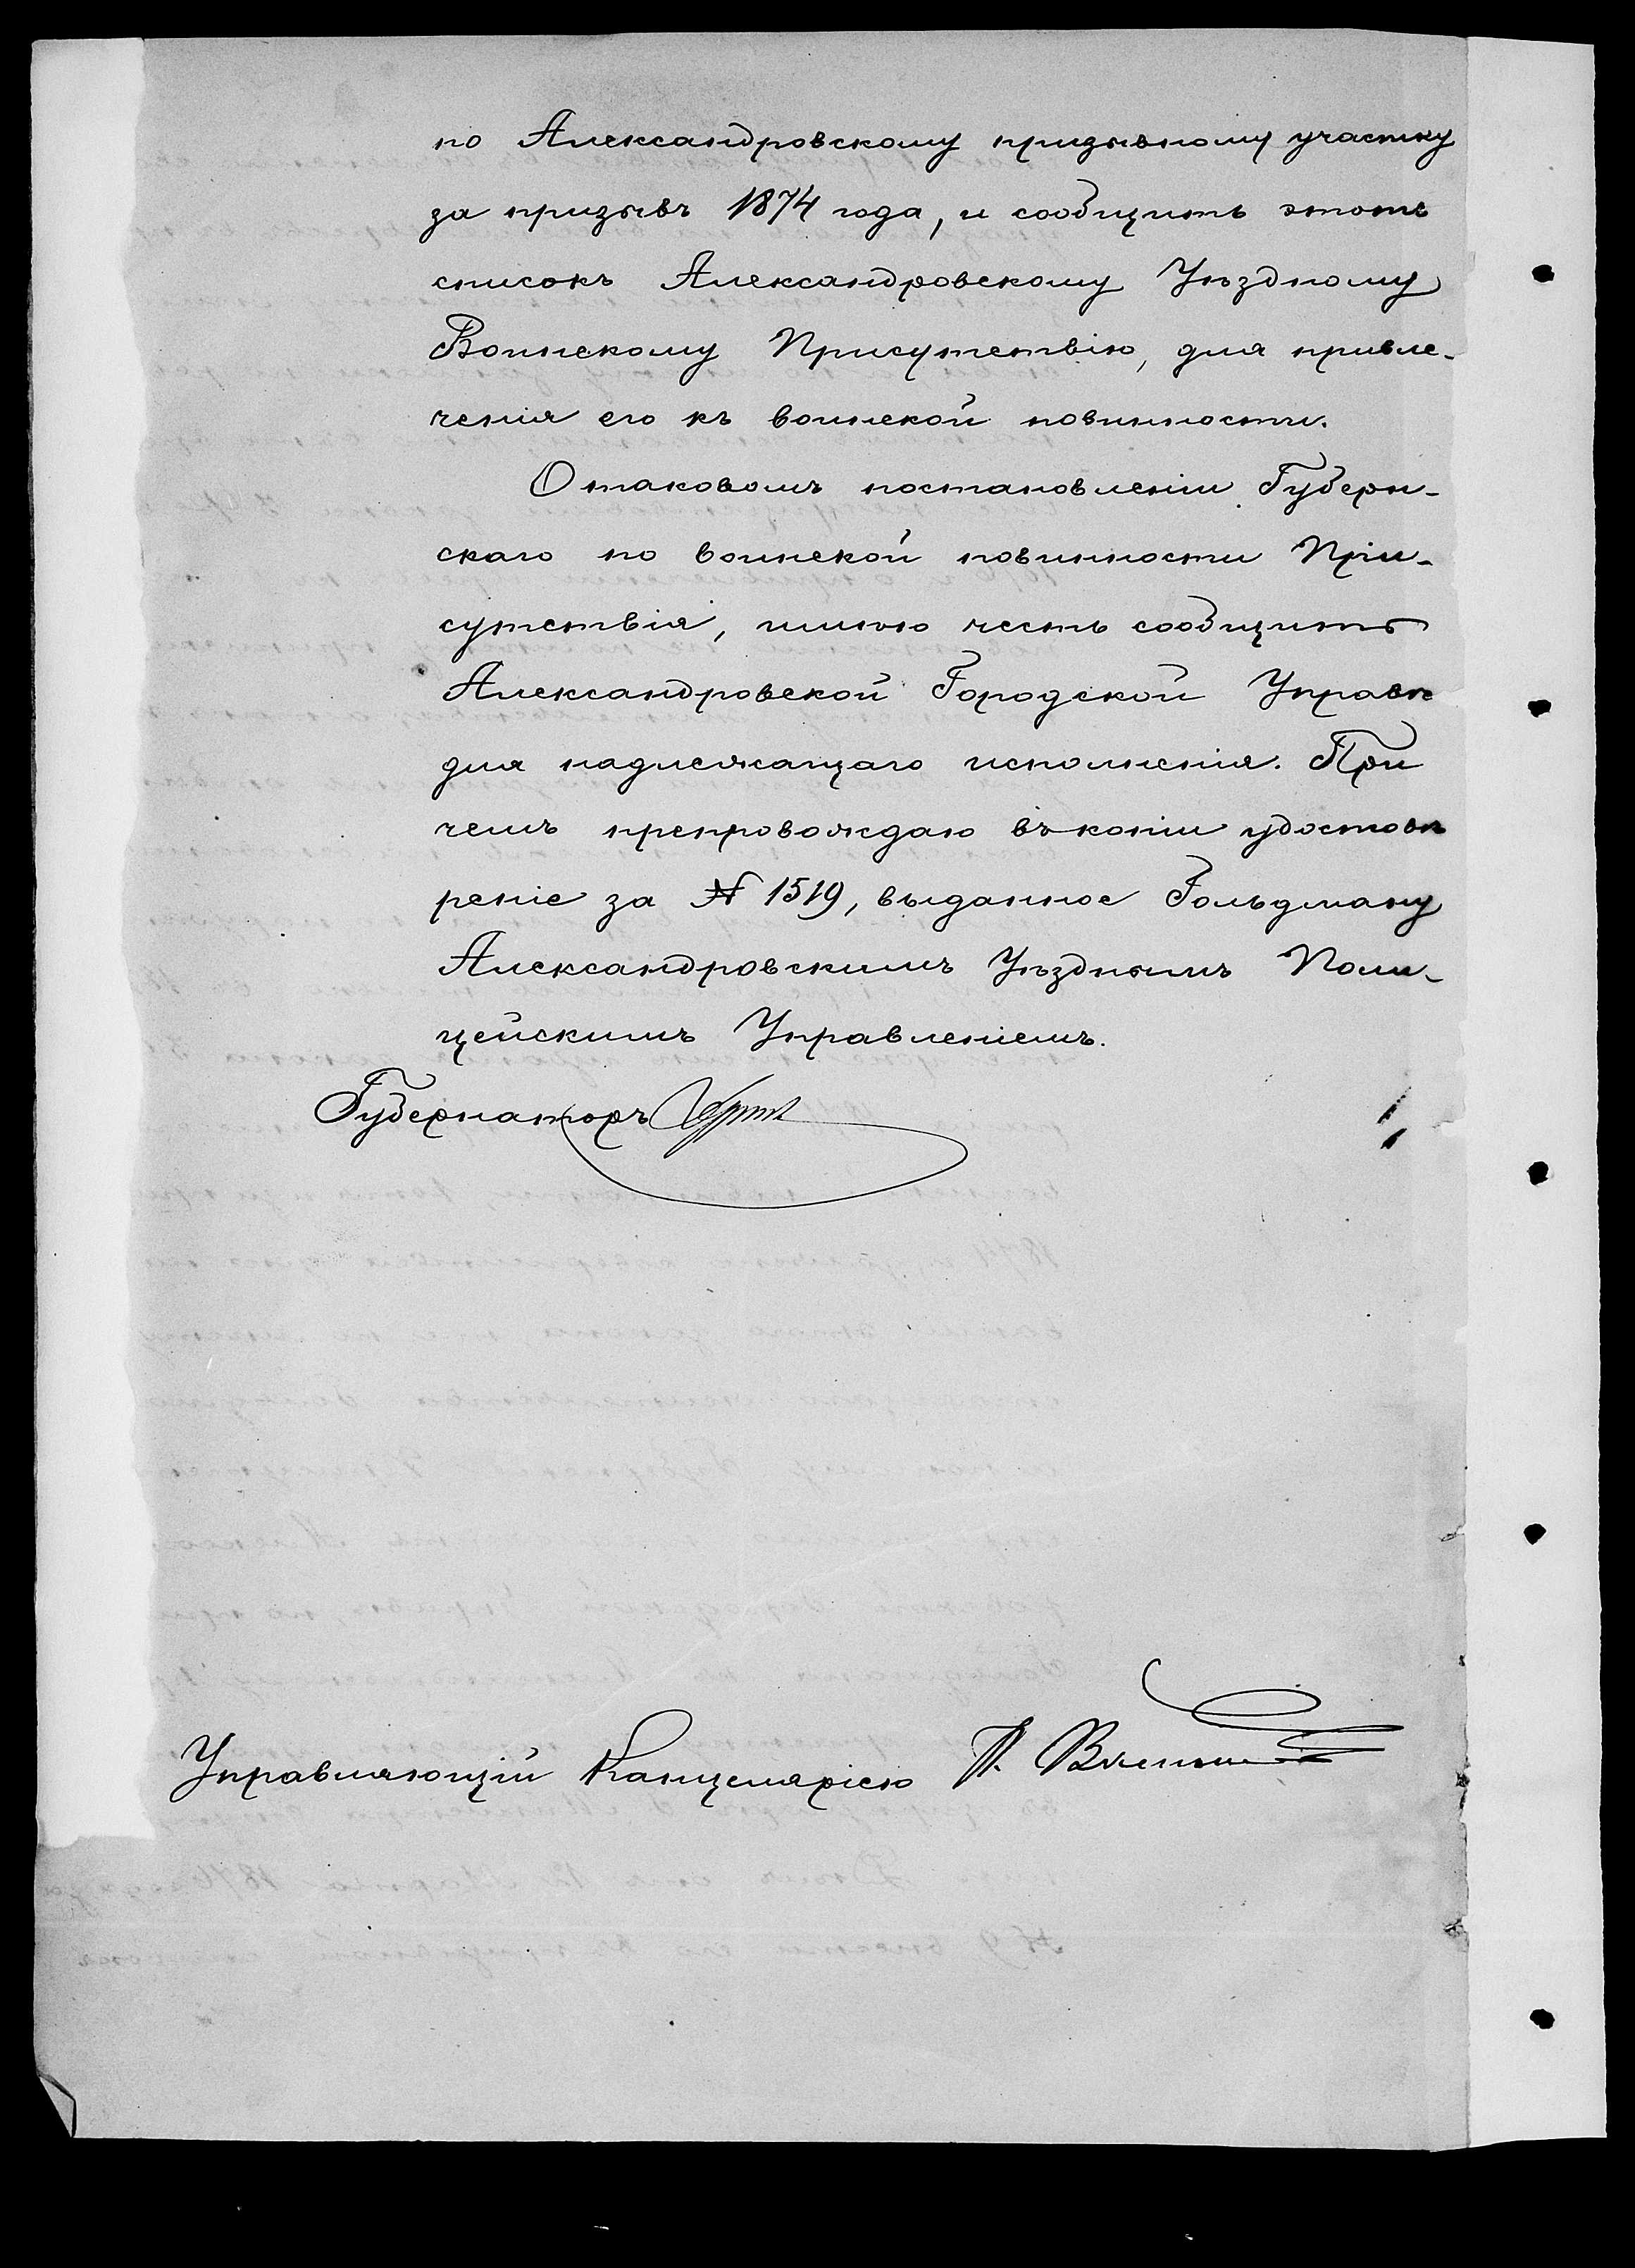 по Александровскому призывному участку
за призывъ 1874 года, и сообщить этотъ
списокъ Александровскому Уѣздному
Воинскому Присутствію, для привле-
ченія его къ воинской повинности.
О таковомъ постановленіи Губерн-
скаго по воинской повинности При-
сутствія, имѣю честь сообщить
Александровской Городской Управѣ
для надлежащаго исполненія. При
чемъ препровождаю въ копіи удостовѣ
реніе за № 1519, выданное Гольдману
Александровскимъ Уѣзднымъ Поли-
цейскимъ Управленіемъ.
Губернаторъ
Управляющій Канцеляріею